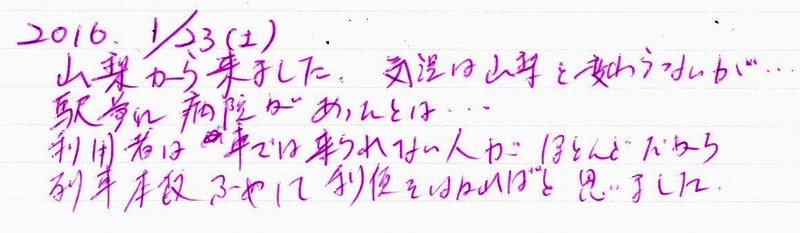 2016. 1/23(土)
山梨から来ました. 気温は山梨と変わらないが…
駅前に病院があったとは…
利用者は車では来られない人がほとんどだから
列車本数ふやして利便をはかればと思いました.